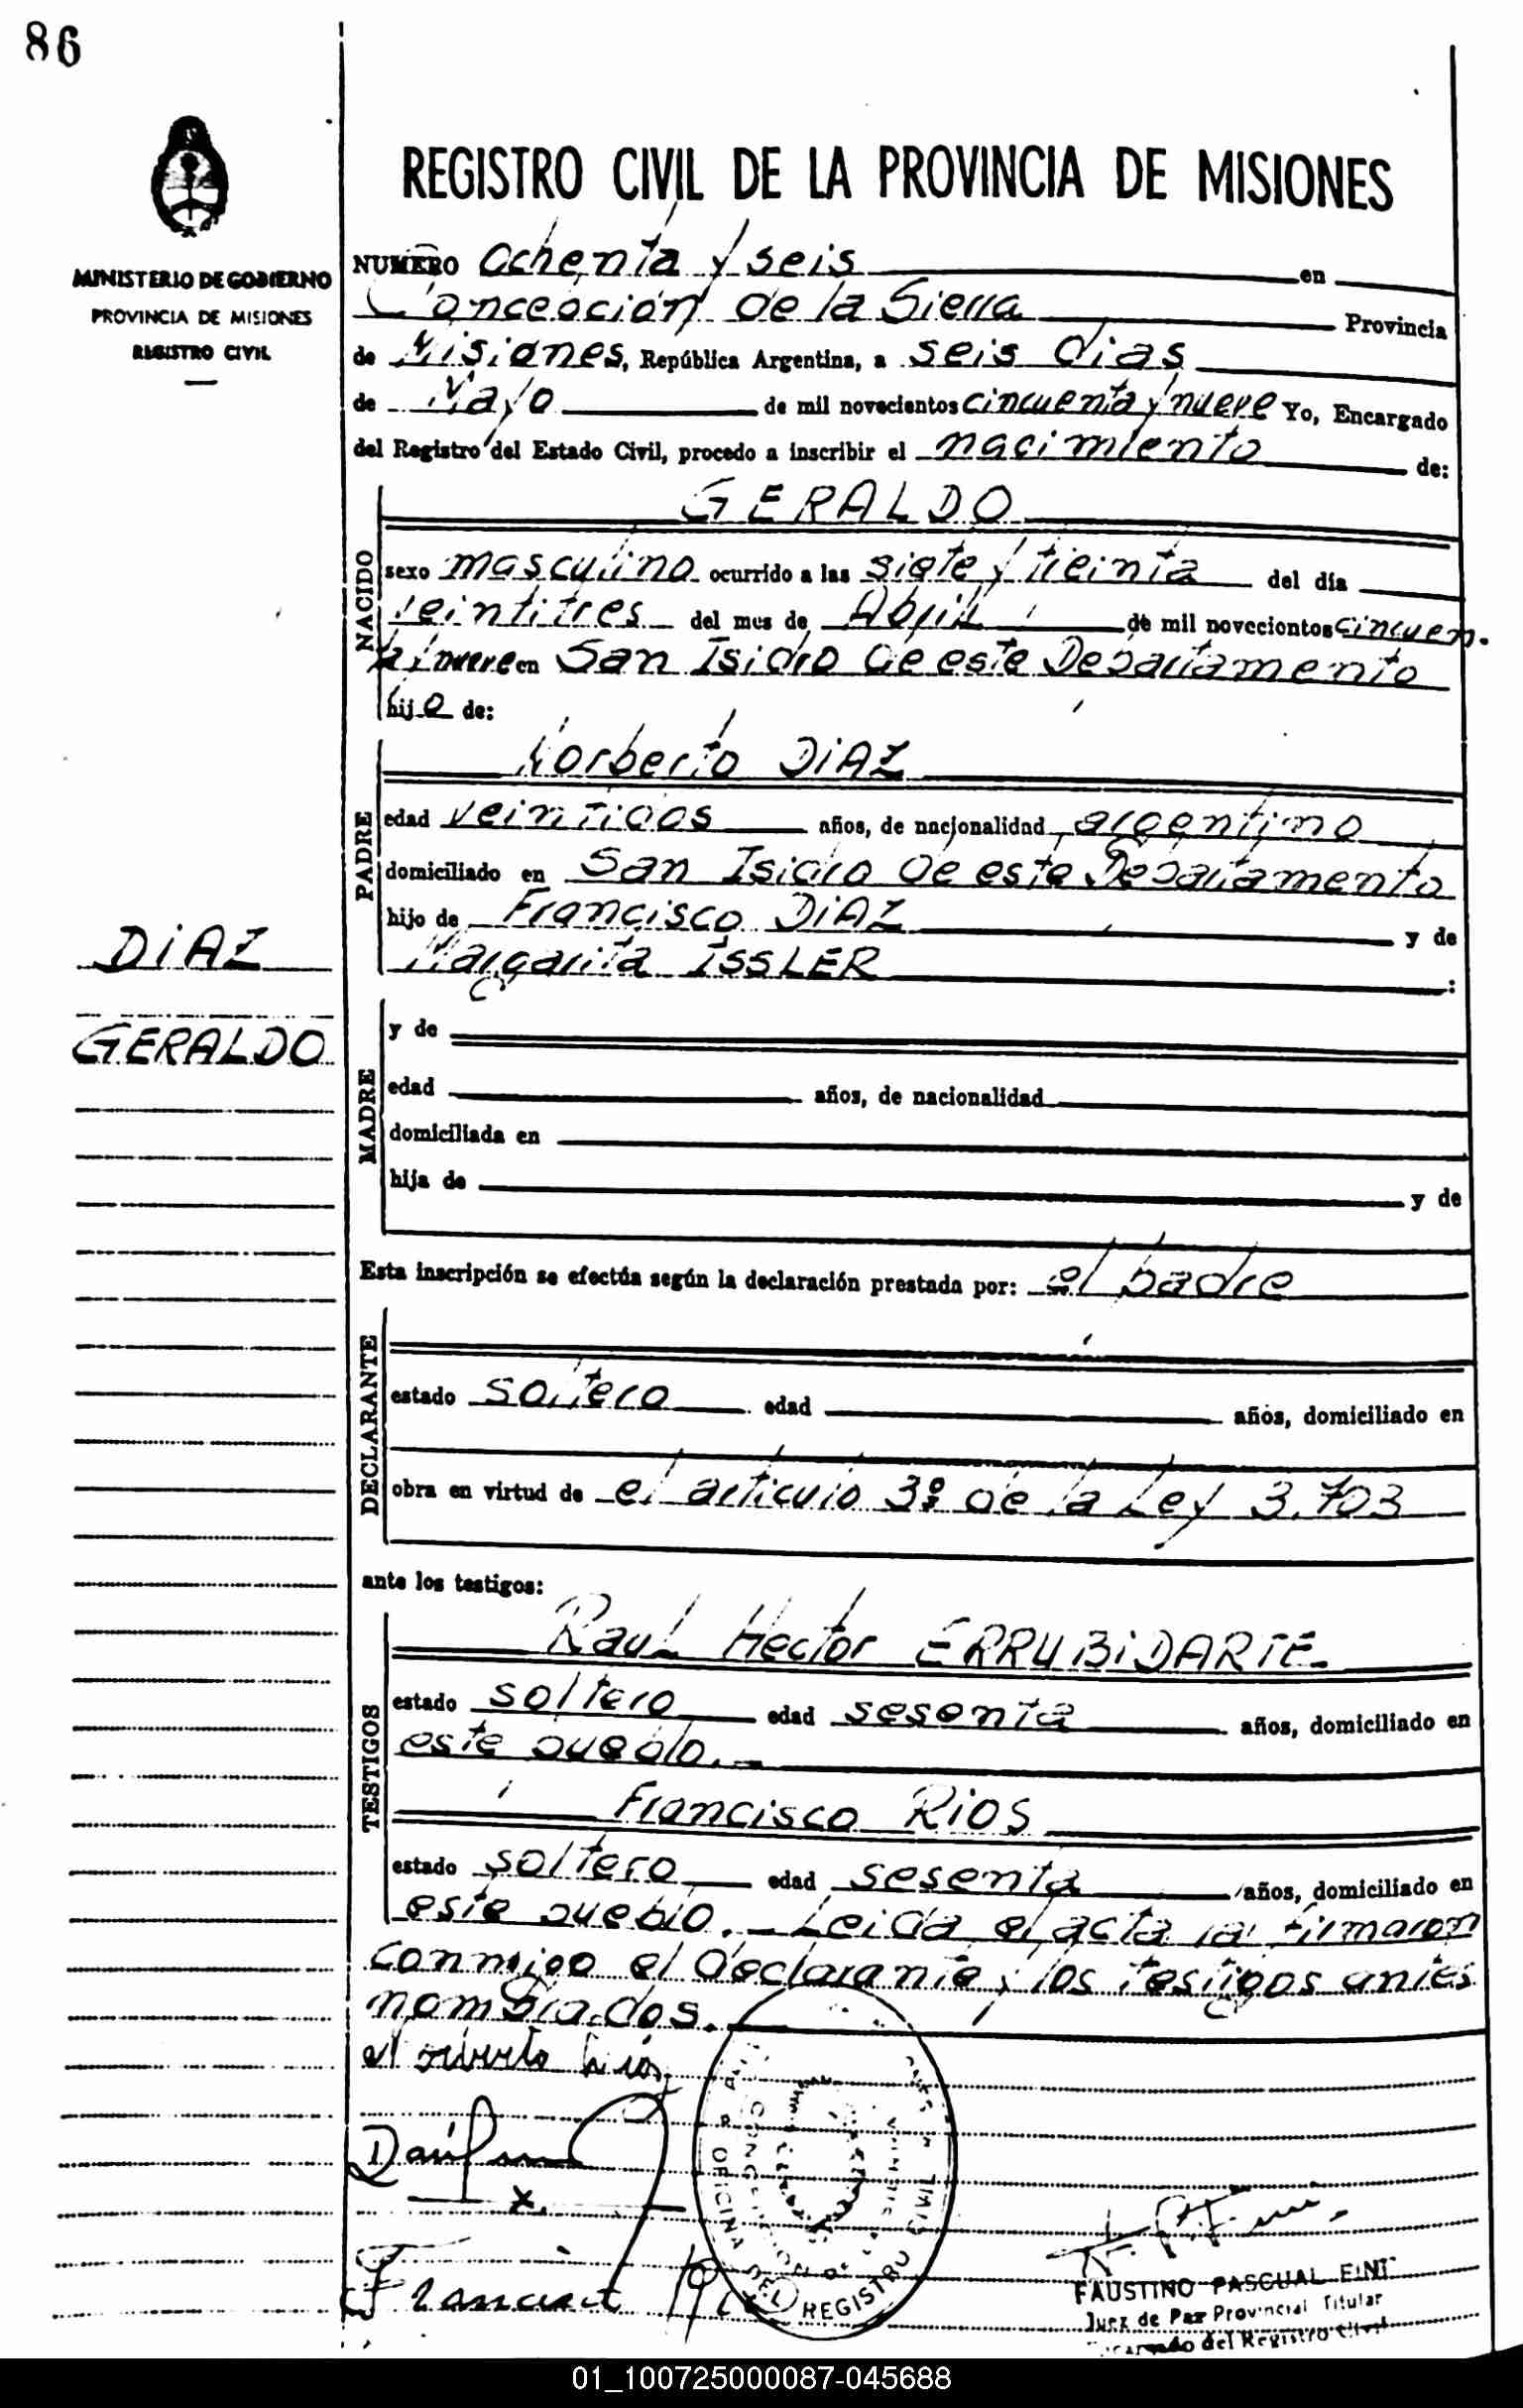 86
MINISTERIO DE GOBIERNO
PROVINCIA DE MISIONES
REGISTRO CIVIL
REGISTRO CIVIL DE LA PROVINCIA DE MISIONES
NUMERO Ochenta y seis en
Concepción de la Sierra Provincia
de Misiones, República Argentina, a seis dias
de Mayo de mil novecientos cincuenta y nueve Yo, Encargado
del Registro del Estado Civil, procedo a inscribir el nacimiento de:
GERALDO
NACIDO
sexo masculino ocurrido a las siete y treinta del día
veintitres del mes de Abril de mil novecientos cincuen-
ta y nueve en San Isidro de este Departamento
hijo de:
Norberto DiAZ
PADRE
edad veintidos años, de nacionalidad argentino
domiciliado en San Isidro de este Departamento
hijo de Francisco DiAZ y de
Margarita ISSLER :
DiAZ
GERALDO
MADRE
y de
edad años, de nacionalidad
domiciliada en
hija de y de
Esta inscripción se efectúa según la declaración prestada por: el padre
DECLARANTE
estado soltero edad años, domiciliado en
obra en virtud de el articulo 3º de la Ley 3.703
ante los testigos:
Raul Hector ERRUBiDARTE.
TESTIGOS
estado soltero edad sesenta años, domiciliado en
este pueblo.-
Francisco RiOS
estado soltero edad sesenta años, domiciliado en
este pueblo.- Leida el acta la firmaron
conmigo el declarante y los testigos antes
nombrados.
OFICINA DEL REGISTRO CIVIL
CONCEPCION DE LA
FAUSTINO PASCUAL
Juez de Paz Provincial Titular
Encargado del Registro Civil
01_100725000087-045688